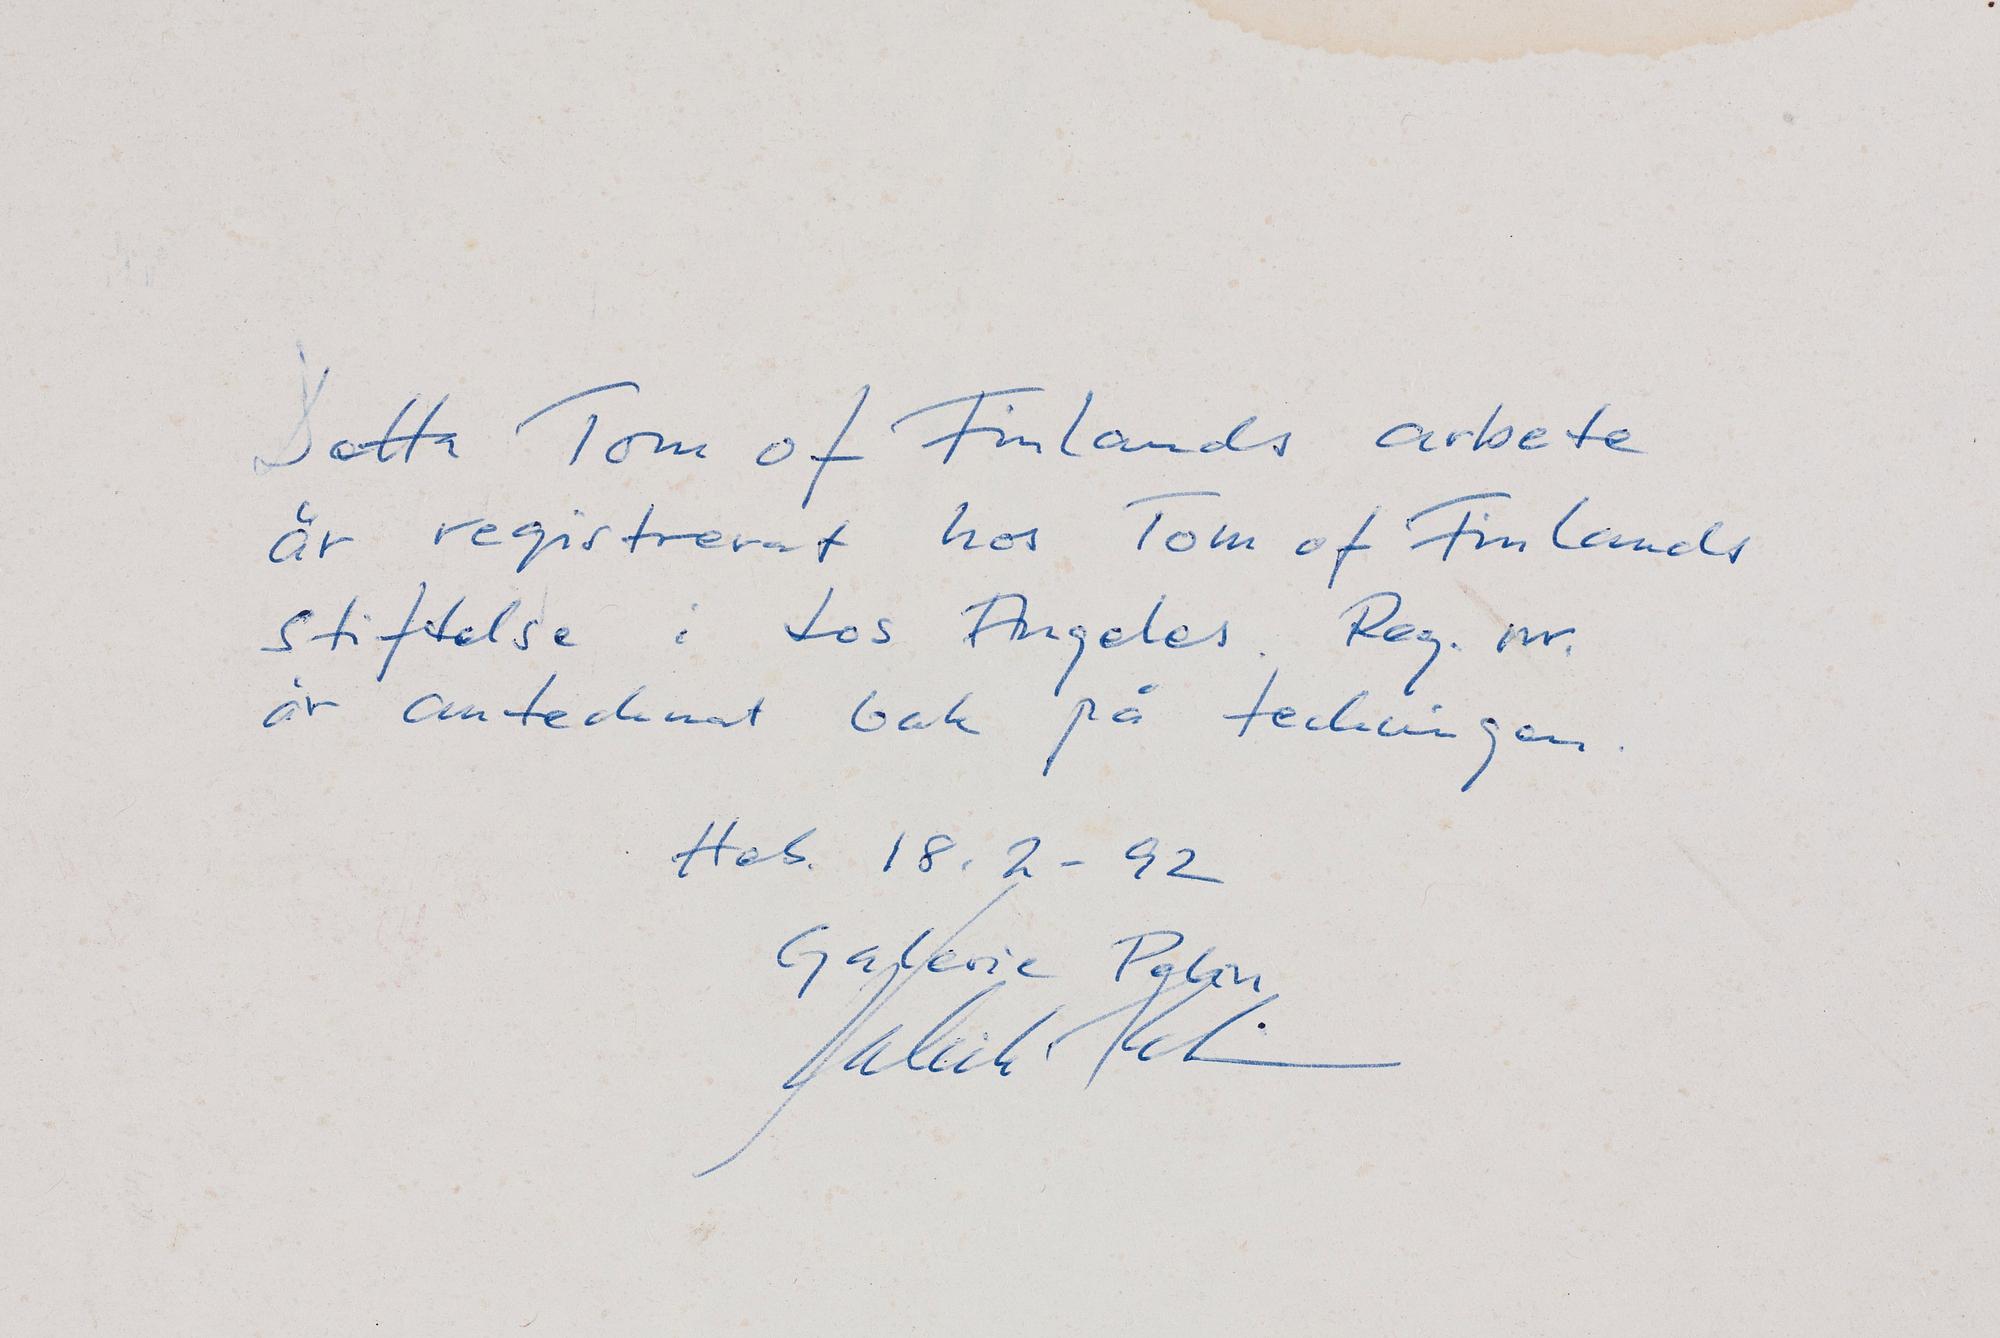 Detta Tom of Finlands arbete
är registrerat hos Tom of Finlands
stiftelse i Los Angeles. Reg. nr.
är antecknat bak på teckningen.
18.2-92
Galerie Pelin